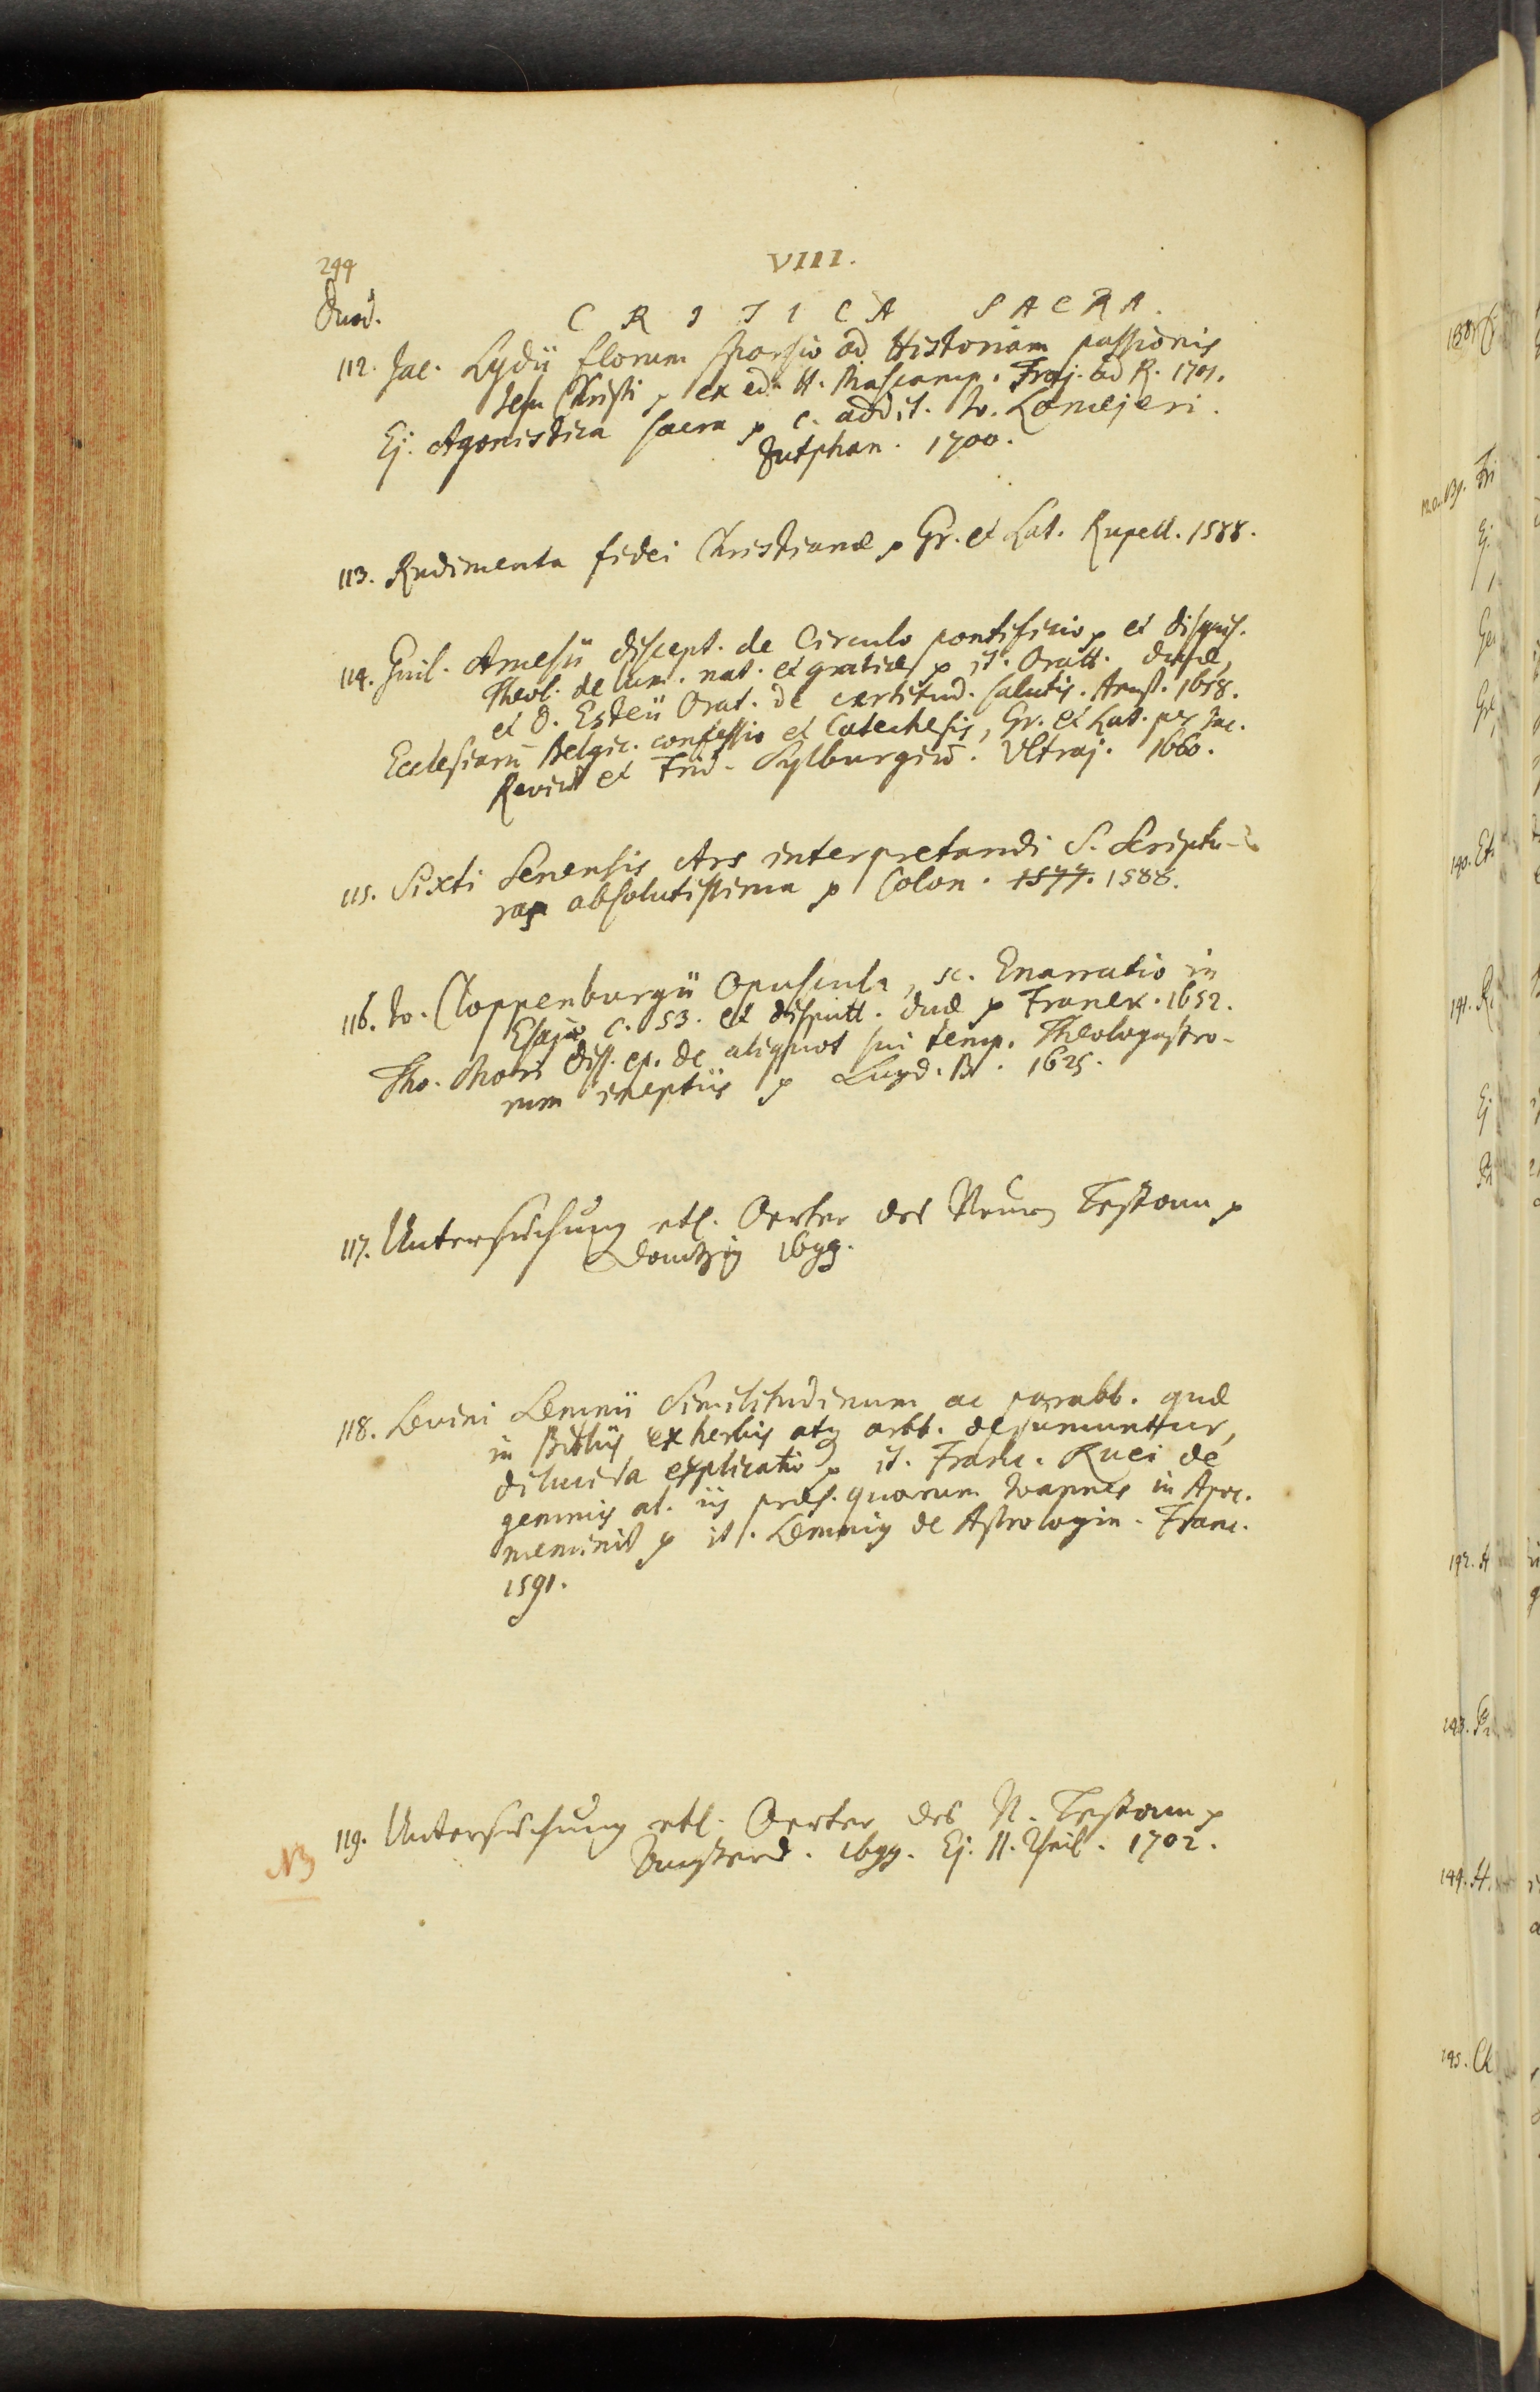 244
VIII.
Duod.
CRITICA SACRA.
112. Jac. Lydii florum sparsio ad Historiam passionis
Jesu Christi p ex ed. H. Mascamp. Traj. ad R. 1701.
Ej. Agonistica sacra p c. addit. Jo. Lomejeri.
Zutphan. 1700.
113. Rudimenta fidei Christianæ p Gr. et Lat. Rupell. 1588.
114. Guil. Amesii discept. de Circulo pontificio p et disquis.
Theol. de lum. nat. et gratiæ p it. Oratt. duæ,
et D. Esteii Orat. de certitud. salutis. Amst. 1658.
Ecclesiarū Belgic. confessio et Catechesis, Gr. et Lat. per Jac.
Reviū et Frid. Sylburgiū. Ultraj. 1660.
115. Sixti Senensis Ars interpretandi S. Scriptu-
ras absolutissima p Colon. 1577. 1588.
116. Jo. Cloppenburgii Opuscula, sc. Enarratio in
Esajæ c. 53. et disputt. duæ p Franek. 1652.
Tho. Mori diss. ep. de aliquot sui temp. Theologastro-
rum ineptiis p Lugd. B. 1625.
117. Untersuchung etl. Oerter des Neuen Testam p
Dantzig 1699.
118. Levini Lemnii Similitudinum ac parabb. quæ
in Bibliis ex herbis atq arbb. desumuntur,
dilucida explicatio p it. Franc. Ruei de
gemmis al. iis præs. quorum Joannes in Apoc.
meminit p it. Lemnig de Astrologia. Franc.
1591.
119. Untersuchung etl. Oerter des N. Testam p
Amsterd. 1699. Ej. II. Theil. 1702.
NB